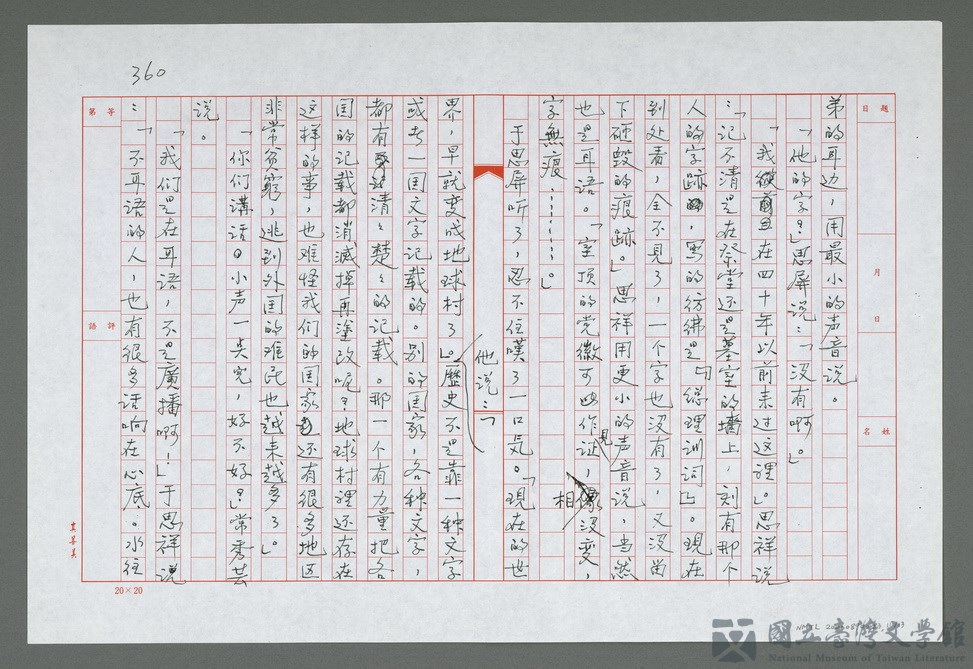 360
題目
月
日
姓名
弟的耳边，用最小的声音说。
「他的字？」思屏说：「没有啊。」
「我彼前且在四十年以前来过这裡。」思祥说
：「记不清是在祭堂还是墓室的墻上，刻有那个
人的字跡，写的彷彿是『总理训词』。现在
到处看，全不見了，一个字也没有了，又没留
下砸毁的痕跡。」思祥用更小的声音说，当然
也是耳语。「室顶的党徽可以作見证，相没变，
字無痕…………。」
于思屏听了，忍不住嘆了一口気。「現在的世
他说：「
界，早就变成地球村了。」歷史不是靠一种文字
或者一国文字记载的。别的国家，各种文字，
都有清清楚楚的记载。那一个有力量把各
国的记载都消滅掉再塗改呢？地球村裡还存在
这样的事，也难怪我们的国家还有很多地区
非常贫窮，逃到外国的难民也越来越多了。」
「你们講话小声一点兒，好不好？」常秀芸
说。
「我们是在耳语，不是廣播啊！」于思祥说
：「不耳语的人，也有很多话响在心底。水往
第
等
評語
20×20
國立臺灣文學館
National Museum of Taiwan Literature